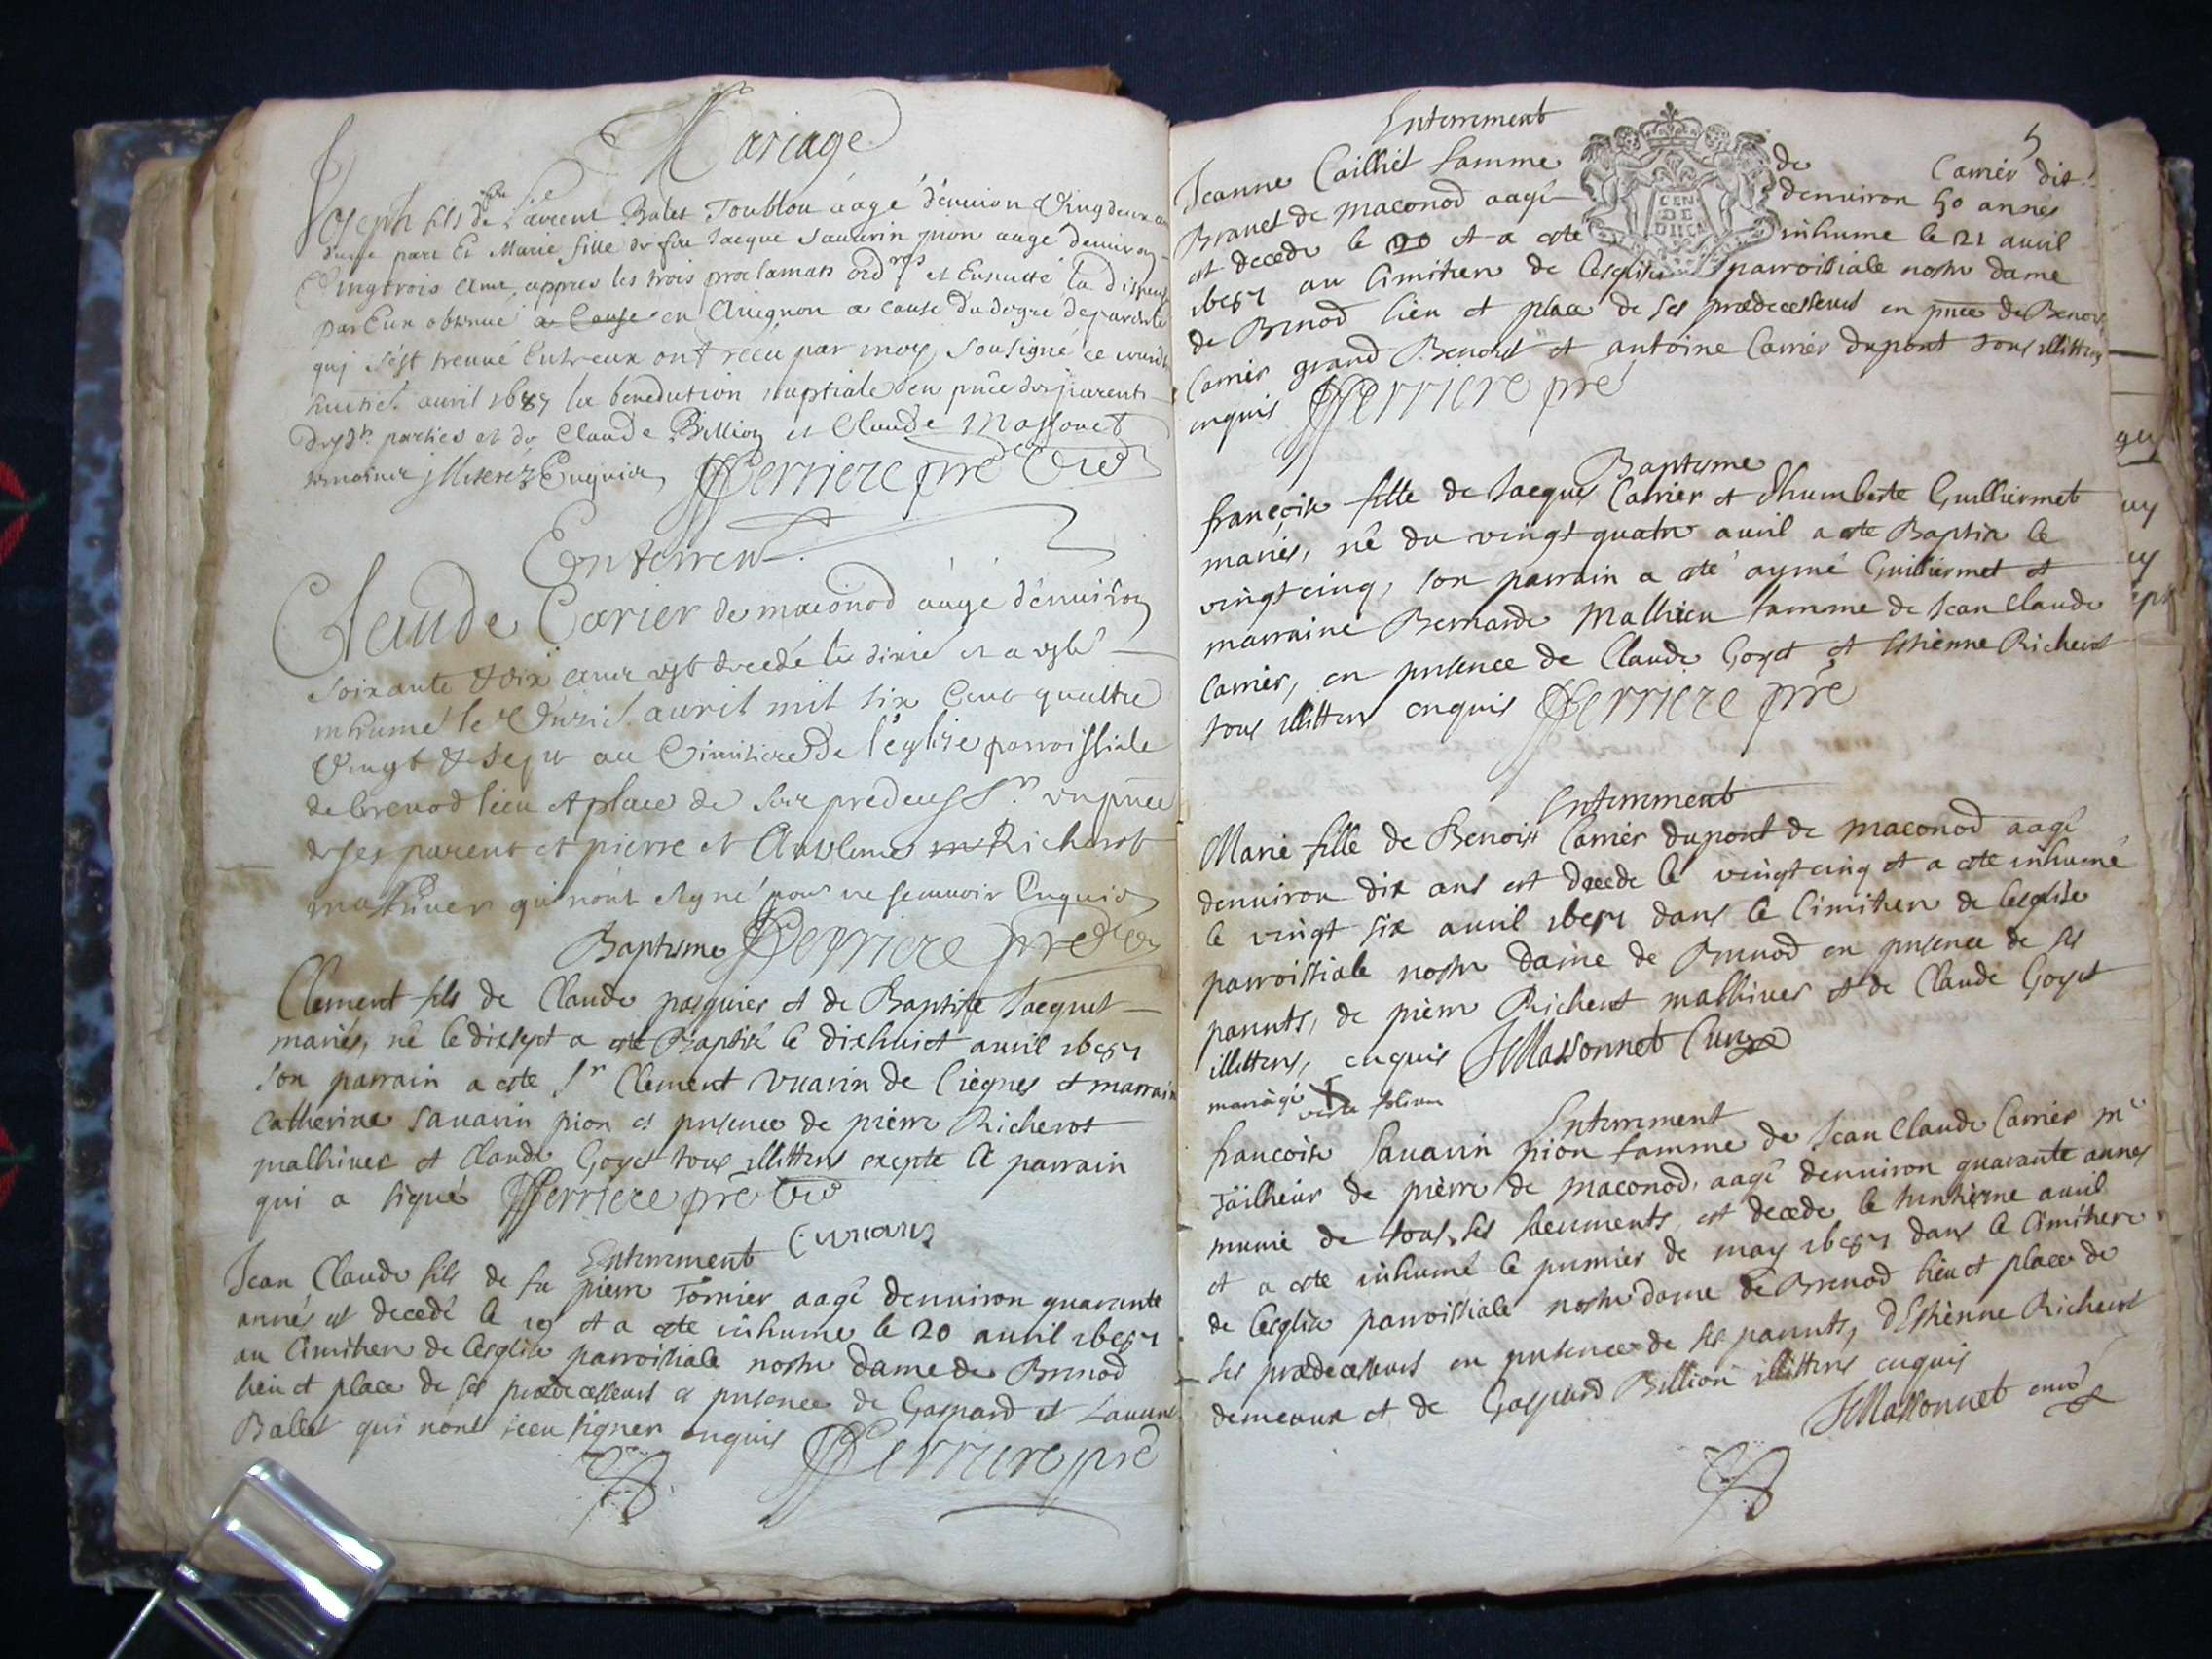 Mariage
Joseph fils de feu Laurent Balet Toublou aagé d'enuiron Vingdeux an
d'une part Et Marie fille de feu Jacque Sauarin pion aagé denuiron
Vingtrois ans, appres les trois proclamats ordres et Ensuitte la dispense
par Eux obtenue a Cause en Auignon a cause du degré de parenté
qui s'est treuué Entreeux ont recu par moy Sousigné ce
auril 1687 la benediction nuptiale en pnce des parents
desdts parties et de Claude Billion et Claude Massonet
illiterez Enquis fferriere pre vic
Enterremt
Claude Carier de maconod aagé d'enuiron
soixante & dix anné est decedé le dixie et a esté
inhumé le Onzie auril mil six Cent quattre
Vingt & sept au Cimitiere de l'église parroissiale
de brenod lieu & place de ses predecessrs en pnce
de ses parent et pierre et Anthelme Richerot
mathiuer qui n'ont signé pour ne scauoir Enquis
Baptesme fferriere pre vic
Clement fils de Claude pasquier et de Baptiste Jacquet
mariés, né le dixsept a esté Baptisé le dixhuict auril 1687
son parrain a esté Sr Clement Vuarin de Ciegnes et marraine
Catherine Sauarin pion en presence de pierre Richerot
malhiuer et Claude Goyet tous illitters excepte le parrain
qui a signé fferriere pre vic
C. vuarin
Enterrement
Jean Claude fils de fu pierre Tornier aagé denuiron quarante
annés est decedé le 19 et a esté inhumé le 20 auril 1687
au Cimitiere de lesglise parroissiale nostre dame de Brenod
lieu et place de ses prædecesseurs en presence de Gaspard et Laurent
Balet qui nont sceu signer enquis fferriere pre
5
Enterrement
Jeanne Cailliet famme de Carrier dit
Brauet de maconod aagé denuiron 50 annes
est decede le 20 et a esté inhume le 21 auril
1687 au Cimitiere de lesglise parroissiale nostre dame
de Brenod lieu et place de ses prædecesseurs en pnce de Benoist
Carrier grand Benoist et antoine Carrier dupont tous illitters
enquis fferriere pre
Baptesme
françoise fille de Jacques Carrier et dhumberte Guilliermet
mariés, né du vingt quatre auril a esté Baptise le
vingtcinq, son parrain a esté aymé Guilliermet et
marraine Bernarde Malhieu famme de Jean Claude
Carrier, en presence de Claude Goyet et Estienne Richerot
tous illitters enquis fferriere pre
Enterrement
Marie fille de Benoist Carrier dupont de maconod aagé
denuiron dix ans est decede le vingtcinq et a esté inhumé
le vingt six auril 1687 dans le Cimitiere de lesglise
parroissiale nostre dame de Brenod en presence de ses
parents, de pierre Richerot malhiuer et de Claude Goyet
illitters, enquis JMassonnet Curé
mariage verte folium
Enterrement
francoise Sauarin pion famme de Jean Claude Carrier me
Tailheur de pierre de maconod, aagé denuiron quarante annes
munie de tous ses sacrements est decede le trentiesme auril
et a esté inhumé le premier de may 1687 dans le Cimitiere
de lesglise parroissiale nostre dame de Brenod lieu et place de
ses prædecesseurs en presence de ses parents, dEstienne Richerot
demeaux et de Gaspard Billion illitters enquis
JMassonnet curé